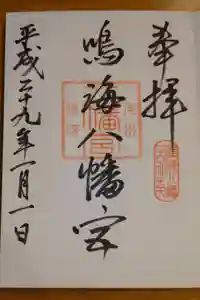 奉拝
鳴海八幡宮
平成二十九年一月一日